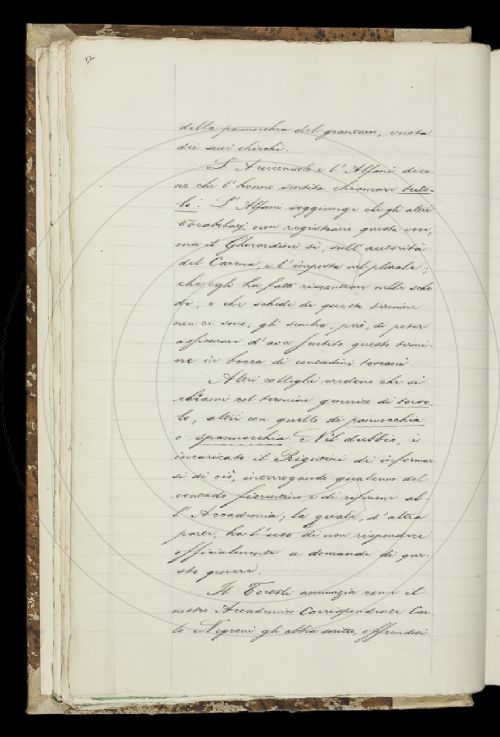 52
della pannocchia del granturco, vuota
dei suoi chicchi.
L'Arciconsolo e l'Alfani dico-
no che l'hanno sentito chiamare tuto-
lo: L'Alfani soggiunge che gli altri
Vocabolarj non registrano questa voce,
ma il Gherardini sì, sull'autorità
del Carena, e l'imposta nel plurale;
che egli ha fatto riscontrare nelle sche
de, e che schede di questo termine
non ci sono, gli sembra, però, di poter
assicurare d'aver sentito questo termi-
ne in bocca di contadini toscani.
Altri colleghi credono che si
chiami col termine generico di torso-
lo, altri con quello di pannocchia
o spannocchia. Nel dubbio, è
incaricato il Rigutini di informar
si di ciò, interrogando qualcuno del
contado fiorentino e di riferirne al-
l'Accademia; la quale, d'altra
parte, ha l'uso di non rispondere
officialmente a domande di que-
sto genere.
Il Tortoli annunzia come il
nostro Accademico Corrispondente Car-
lo Negroni gli abbia scritto, offrendosi